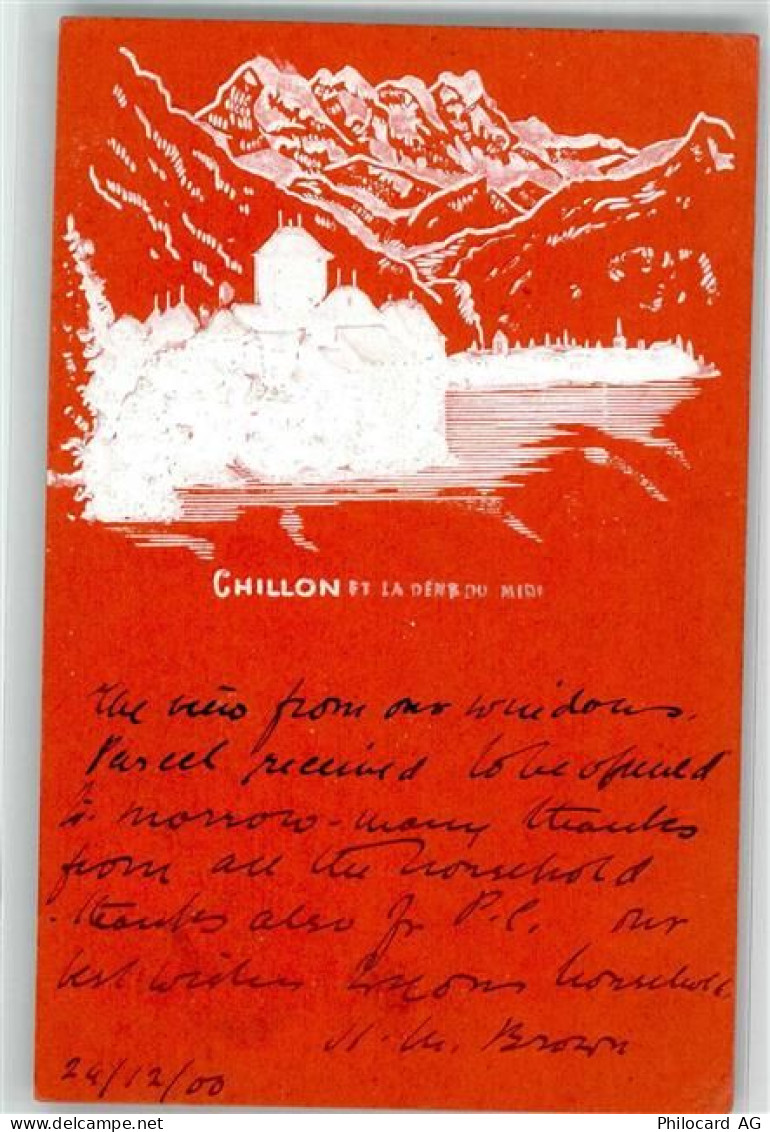 CHILLON ET LA DENT DU MIDI
The view from our windows.
Parcel received to be opened
to morrow - many thanks
from all the household
thanks also for P.C. our
best wishes household.
H. M. Brown
24/12/00
Philocard AG